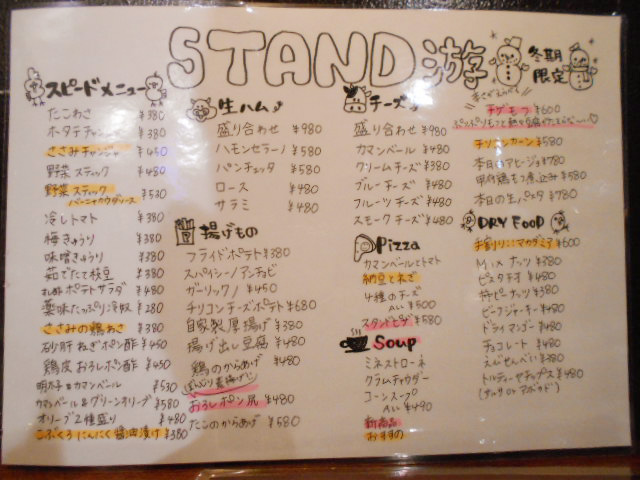 STAND遊
冬期
限定
スピードメニュー
たこわさ ¥380
ホタテチャンジャ ¥380
ささみチャンジャ ¥450
野菜スティック ¥480
野菜スティック
バーニャカウダソース ¥530
冷しトマト ¥380
梅きゅうり ¥380
味噌きゅうり ¥380
茹でたて枝豆 ¥380
ポテトサラダ ¥480
薬味たっぷり冷奴 ¥280
ささみの鶏わさ ¥380
砂肝ねぎポン酢 ¥450
鶏皮おろしポン酢 ¥450
明太子のカマンベール ¥530
カマンベール&グリーンオリーブ ¥580
オリーブ2種盛り ¥480
こぶくろにんにく醤油漬け ¥380
生ハム
盛り合わせ ¥980
ハモンセラーノ ¥580
パンチェッタ ¥580
ロース ¥480
サラミ ¥480
揚げもの
フライドポテト ¥380
スパイシーアンチョビ
ガーリック ¥450
チリコンチーズポテト ¥680
自家製厚揚げ ¥380
揚げ出し豆腐 ¥480
鶏のからあげ ¥480
おろしポン尻 ¥480
たこのからあげ ¥580
チーズ
盛り合わせ ¥980
カマンベール ¥480
クリームチーズ ¥380
ブルーチーズ ¥480
フルーツチーズ ¥480
スモークチーズ ¥480
Pizza
カマンベールとトマト
納豆とねぎ
4種のチーズ
ALL ¥500
スタンドピザ ¥580
Soup
ミネストローネ
クラムチャウダー
コーンスープ
ALL ¥490
新商品
おすすめ
チゲモツ ¥600
チリコンカーン ¥580
本日のアヒージョ ¥780
甲州鶏もつ煮込み ¥580
本日の生パスタ ¥780
DRY FOOD
手割りマカダミア ¥600
Mixナッツ ¥380
ピスタチオ ¥480
柿ピーナッツ ¥380
ビーフジャーキー ¥480
ドライマンゴー ¥480
チョコレート ¥480
えびせんべい ¥380
トルティーヤチップス ¥480
(サルサorアボカド)